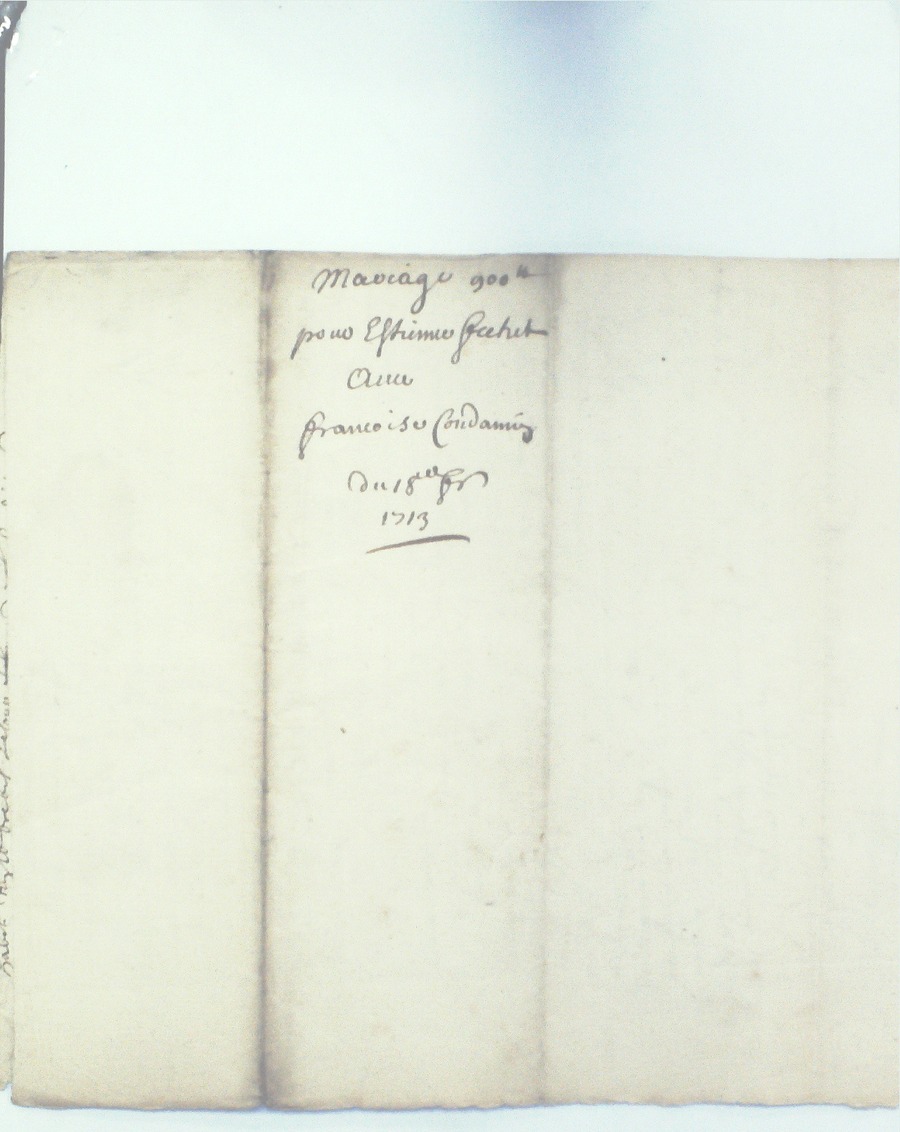 Mariage 900ᵗᵗ
pour Estienne
Avec
francoise Condamin
du 18
1713